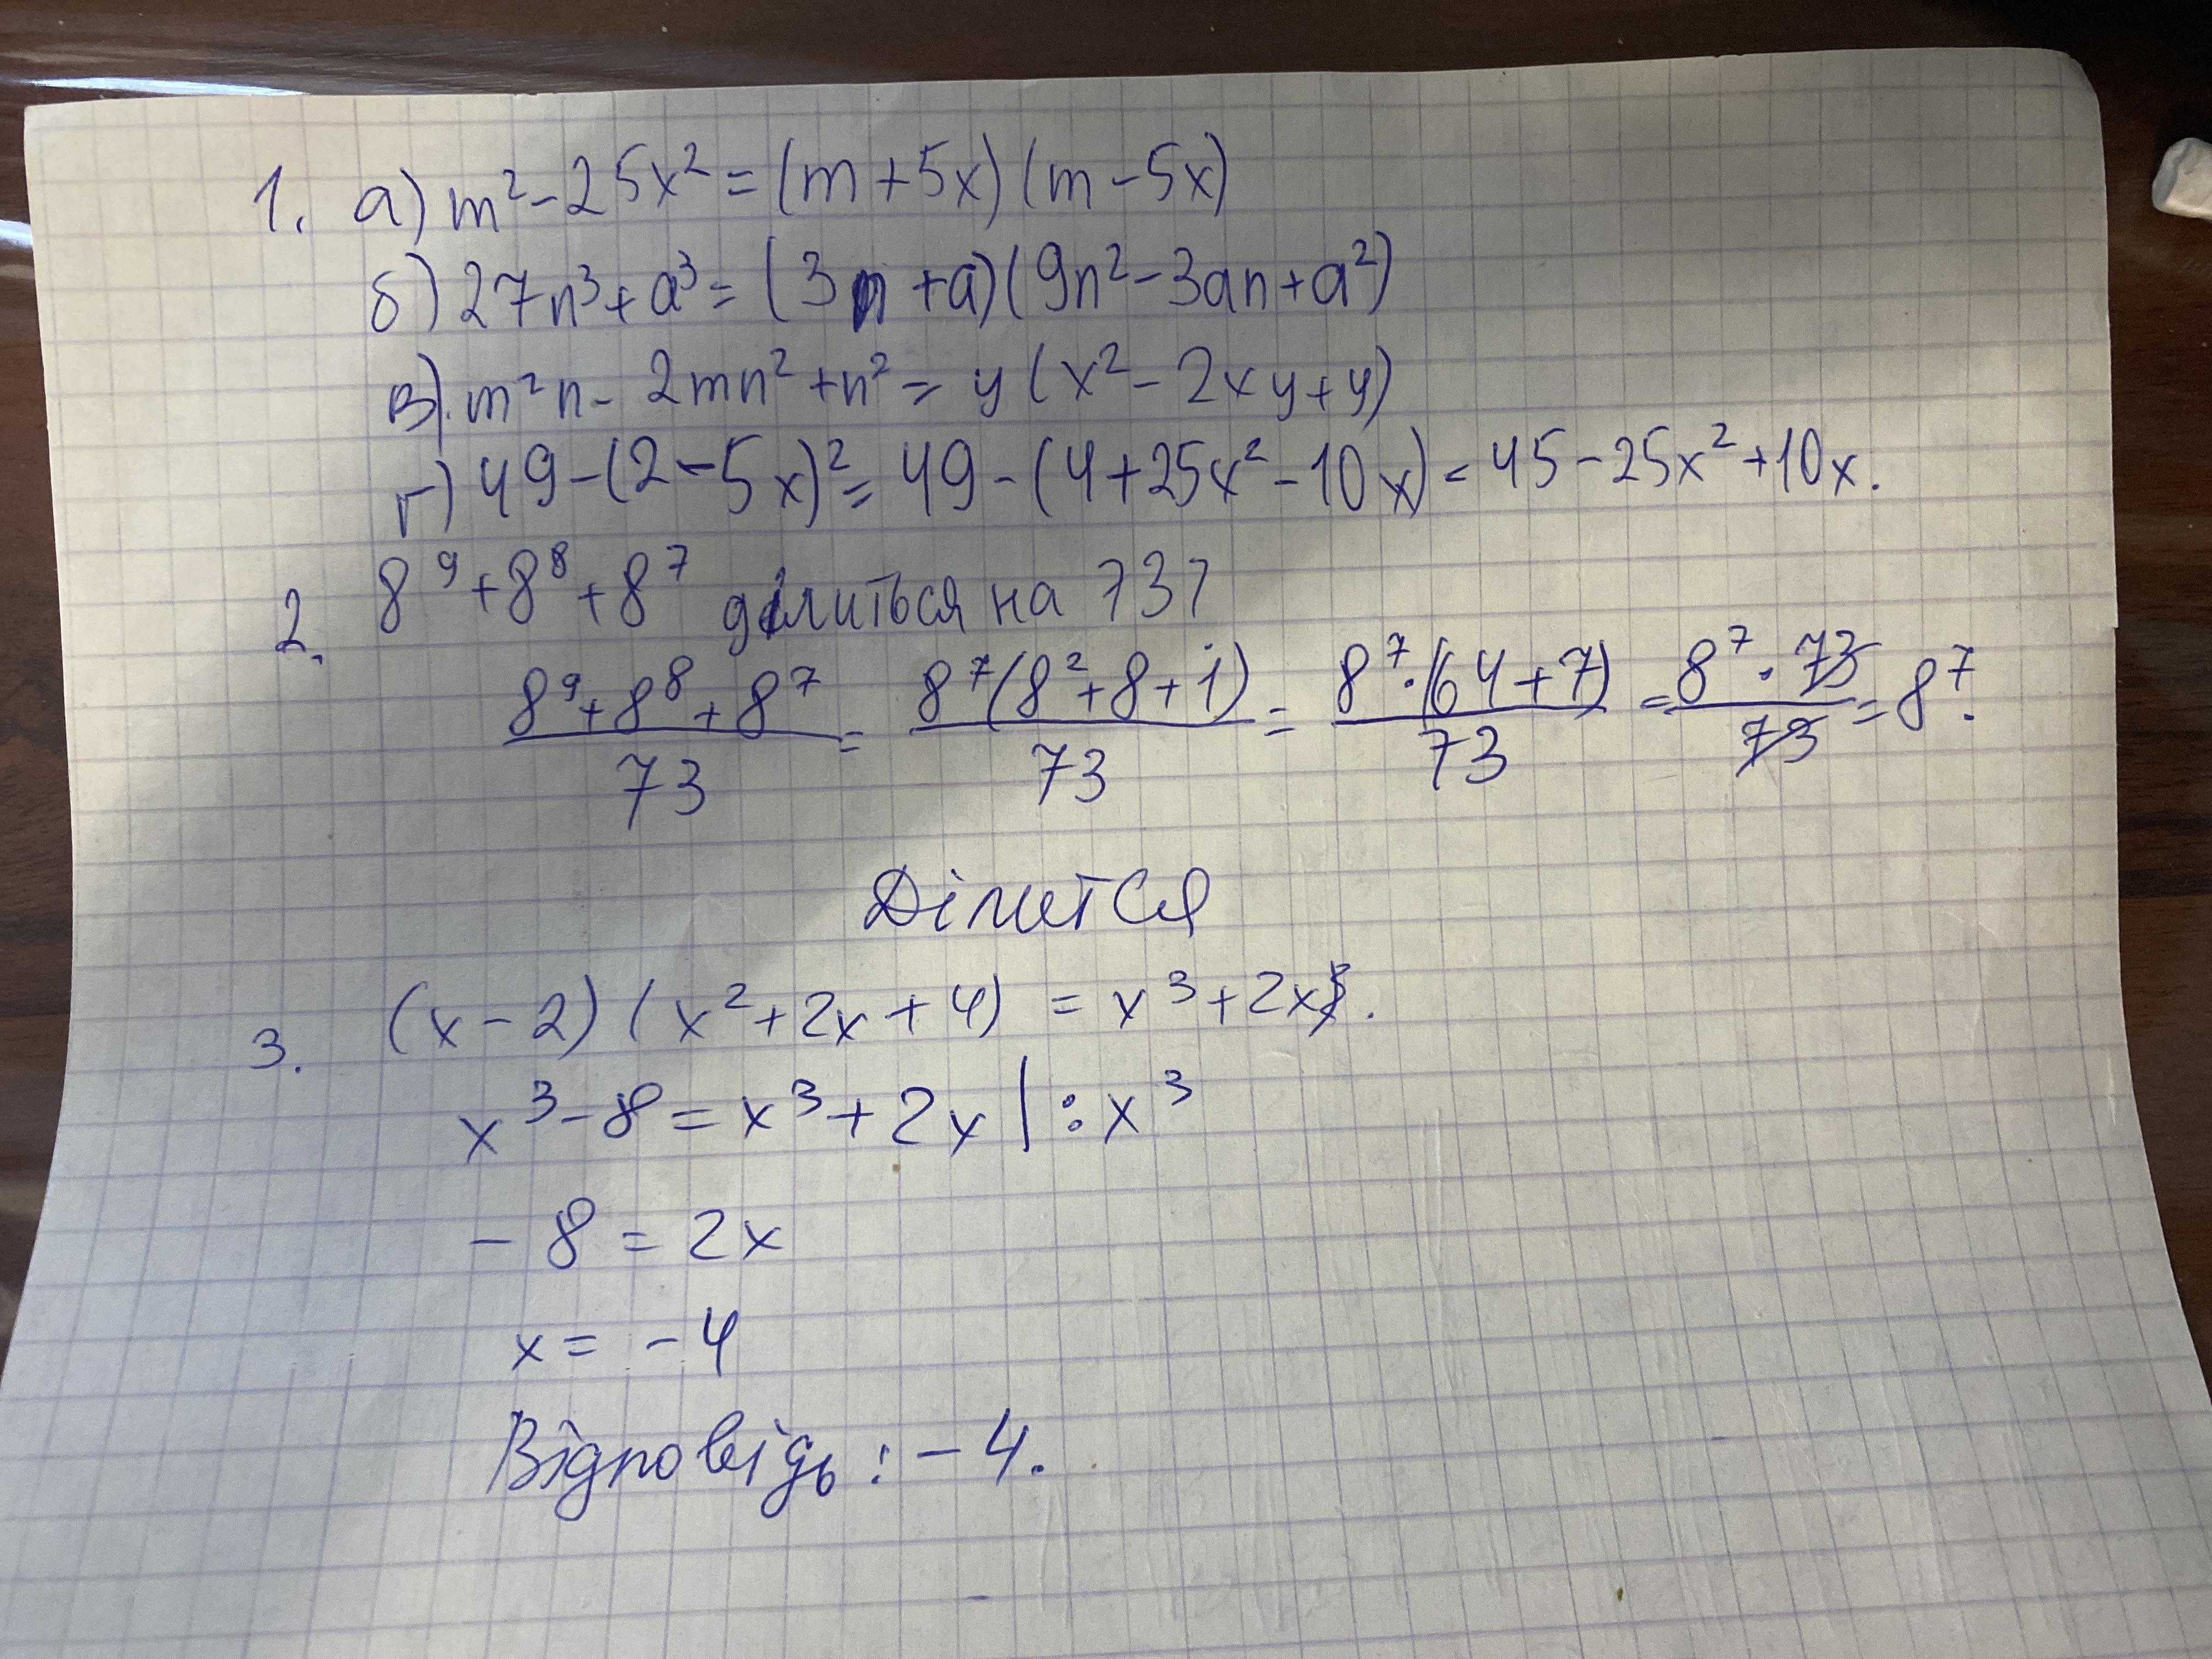 1. а) m² - 25x² = (m + 5x) (m - 5x)
б) 27n³ + a³ = (3n + a) (9n² - 3an + a²)
в) m²n - 2mn² + n² = y (x² - 2xy + y)
г) 49 - (2 - 5x)² = 49 - (4 + 25x² - 10x) = 45 - 25x² + 10x.
2. 8⁹ + 8⁸ + 8⁷ ділиться на 73?
(8⁹ + 8⁸ + 8⁷)/73 = (8⁷(8² + 8 + 1))/73 = (8⁷·(64 + 7))/73 = (8⁷ · 73)/73 = 8⁷.
Ділится
3. (x - 2) (x² + 2x + 4) = x³ + 2x.
x³ - 8 = x³ + 2x | : x³
- 8 = 2x
x = - 4
Відповідь : - 4.